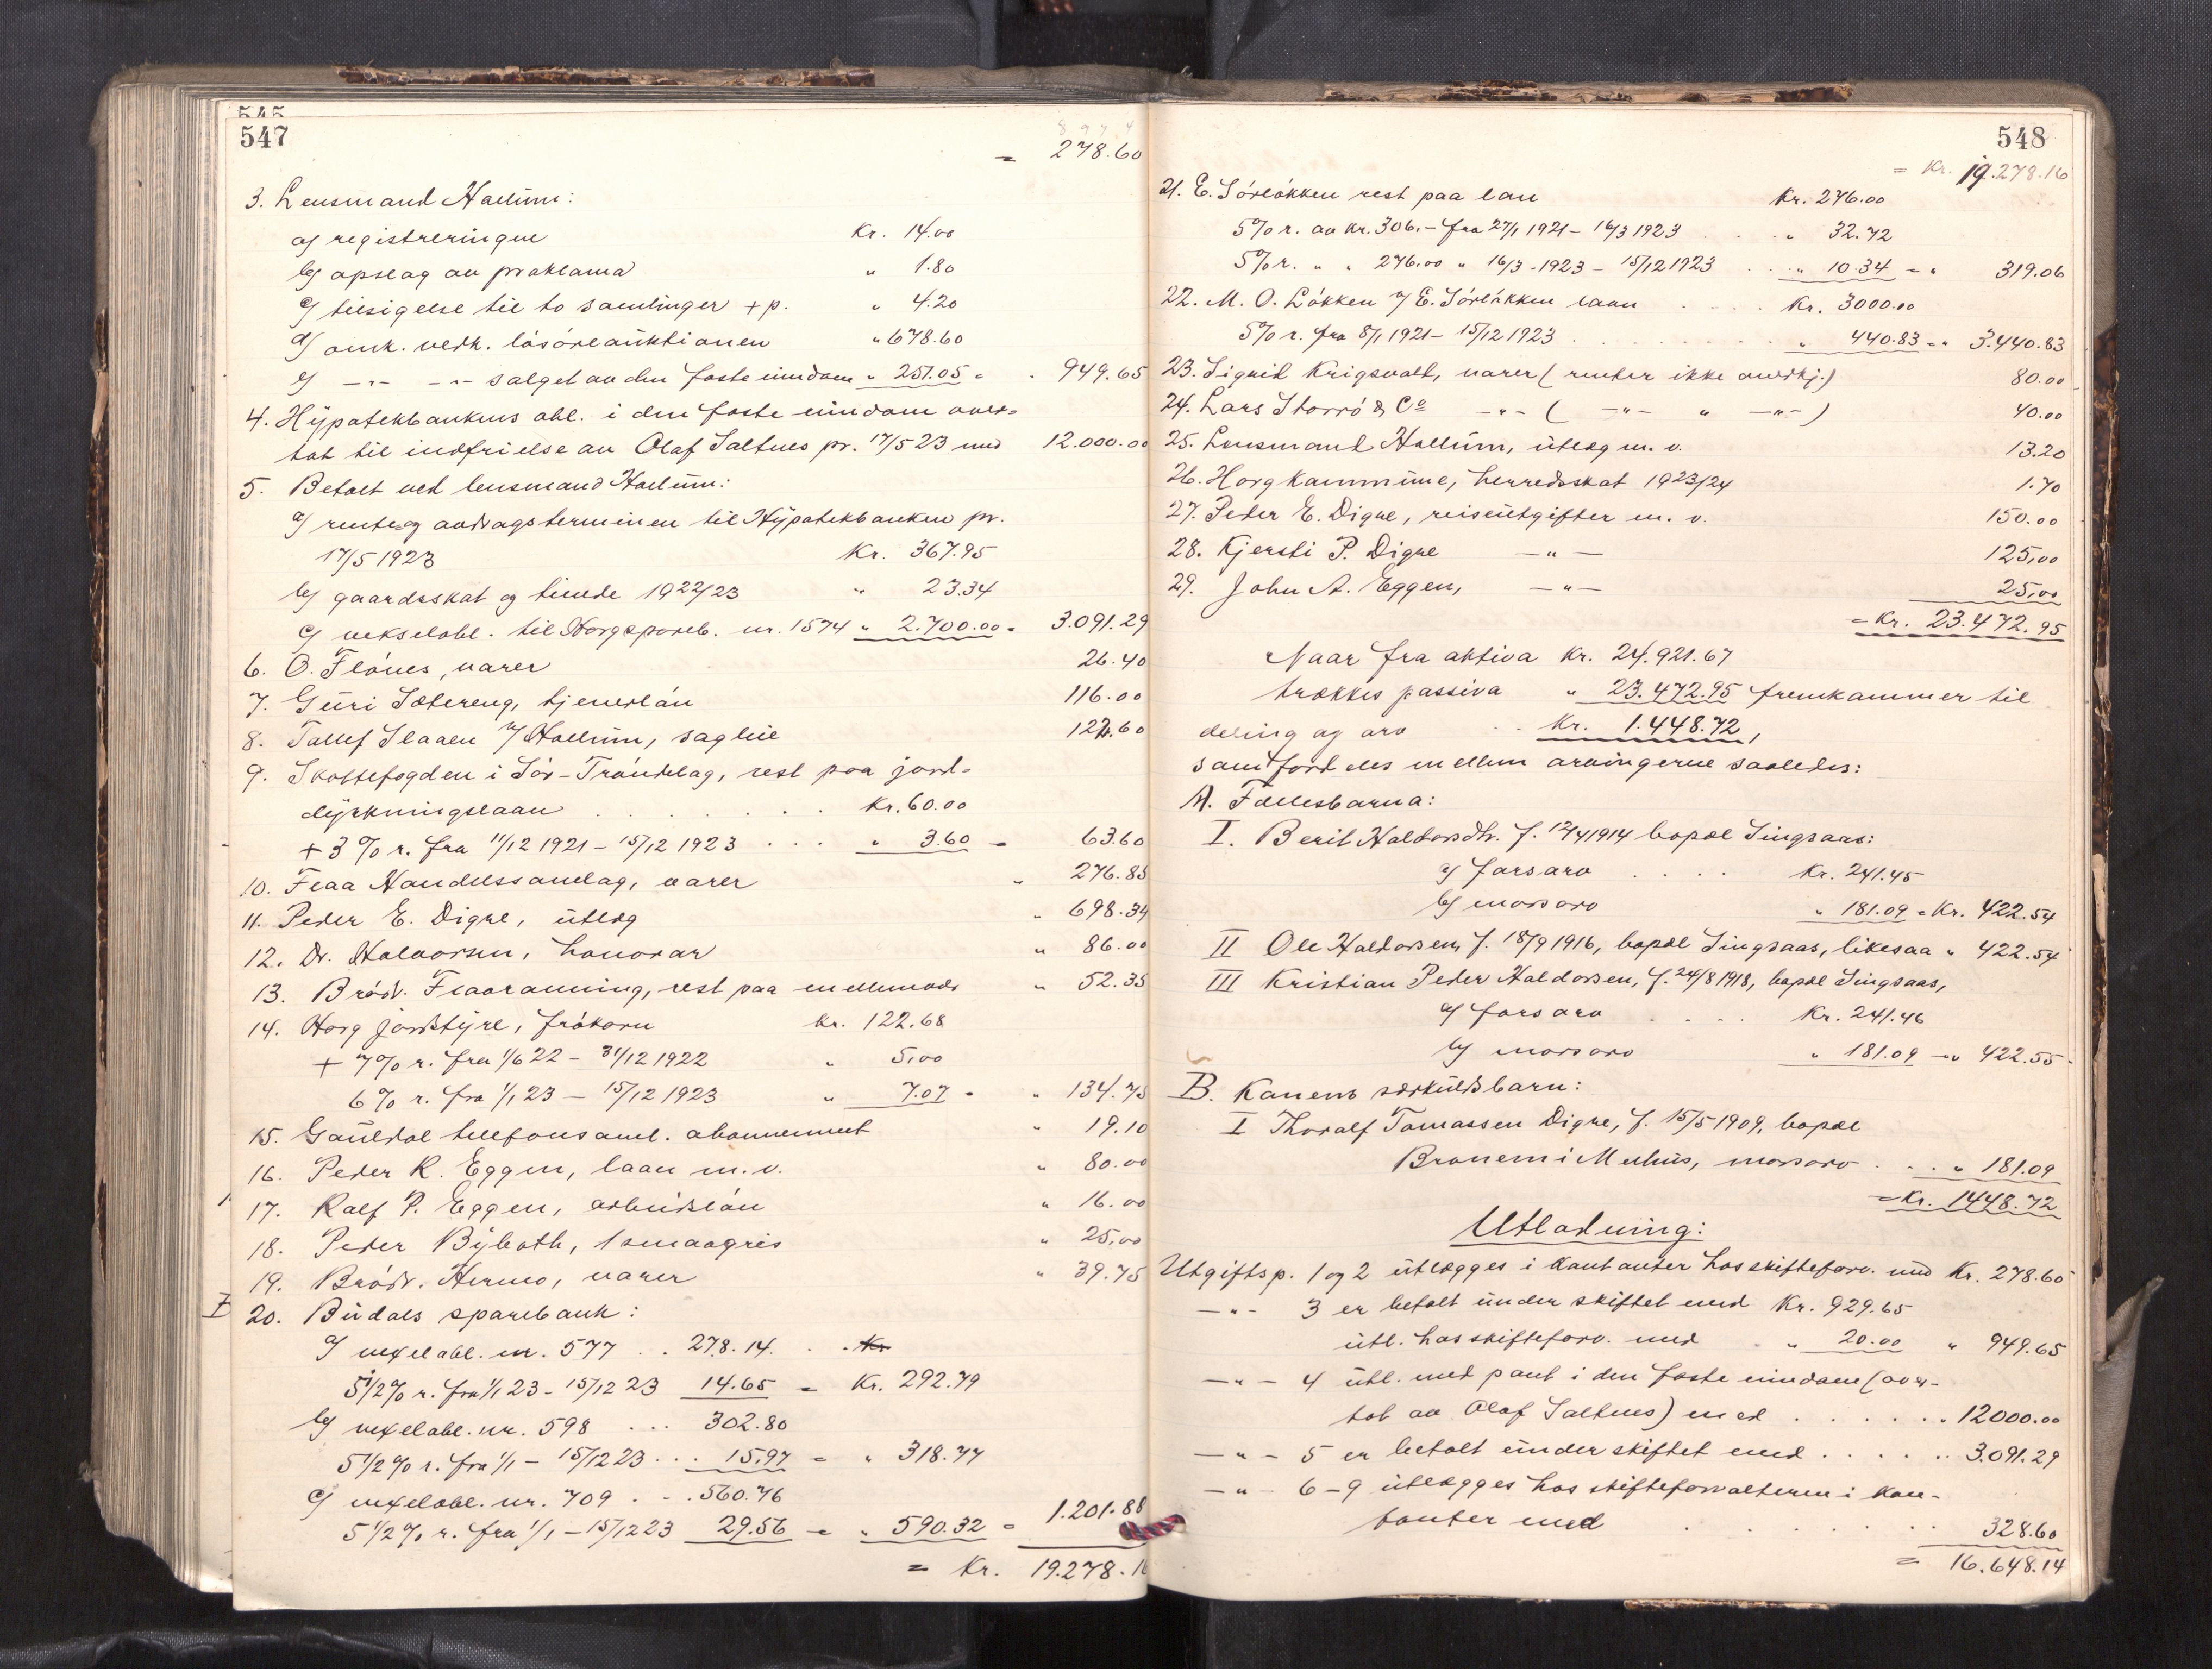 545
547
= 278.60
3. Lensmand Hallüm:
a) registreringen Kr. 14.00
b) opslag av proklama " 1.80
c) tilsigelse til to samlinger + p. " 4.20
d) omk. vedk. lösöreauktionen " 678.60
e) -"- -"- salget av den faste eiendom " 251.05 = 949.65
4. Hypotekbankens obl. i den faste eiendom over-
tat til indfrielse av Olaf Saltnes pr. 17/5 23 med 12.000.00
5. Betalt ved lensmand Hallüm:
a) rente og avdragsterminen til Hypotekbanken pr.
17/5 1923 Kr. 367.95
b) gaardsskat og tiende 1922/23 " 23.34
c) vekselobl. til Horg spareb. nr. 1574 " 2.700.00 = 3.091.29
6. O. Flönes, varer 26.40
7. Guri Sætereng, tjenerlön 116.00
8. Tollef Slaaen v/ Hallüm, saghü 122.60
9. Skattefogden i Sör-Tröndelag, rest paa jord-
dyrkningslaan Kr. 60.00
+ 3 % r. fra 11/12 1921 - 15/12 1923 " 3.60 = 63.60
10. Flaa Handelssamlag, varer " 276.85
11. Peder E. Digre, ütlæg " 698.34
12. Dr. Halvorsen, honorar " 86.00
13. Brödr. Flaarönning, rest paa mellemvær " 52.35
14. Horg jordstyre, frökorn kr. 122.68
+ 7 % r. fra 1/6 22 - 31/12 1922 " 5,00
6 % r. fra 1/1 23 - 15/12 1923 " 7.07 = " 134.75
15. Gauldal telefonsaml. abonnement " 19.10
16. Peder R. Eggen, laan m.v. " 80.00
17. Ralf P. Eggen, arbeidslön " 16.00
18. Peder Bybroth, 1 smaagris " 25,00
19. Brödr. Hermo, varer " 39.75
20. Büdals sparebank:
a) vexelobl. nr. 577 . . 278.14. . . Kr.
5 1/2 % r. fra 1/1 23 - 15/12 23 14.65 = Kr. 292.79
b) vexelobl. nr. 598 ... 302.80
5 1/2 % r. fra 1/1 - 15/12 23 ... 15,97 = " 318.77
c) vexelobl. nr. 709 . . . 560.76
5 1/2 % r. fra 1/1 - 15/12 23 29.56 = " 590.32 = 1.201.88
= Kr. 19.278.16
548
= Kr. 19.278.16
21. E. Sörlökken rest paa lan Kr. 276.00
5 % r. av kr. 306.- fra 27/1 1921 - 16/3 1923 . . " 32.72
5 % r. " " 276.00 " 16/3 - 1923 - 15/12 1923 . . " 10.34 = " 319.06
22. M. O. Lökken v/ E. Sörlökken laan . . . . Kr. 3000.00
5 % r. fra 8/1 1921 - 15/12 1923 . . . . " 440.83 = " 3.440.83
23. Sigurd Krigsvoll, varer (renter ikke anerkj.) 80.00
24. Lars Storrö & Co -"- ( -"- " -"- ) 40.00
25. Lensmand Hallüm, ütlæg m.v. 13.20
26. Horg kommüne, herredsskat 1923/24 1.70
27. Peder E. Digre, reiseütgifter m.v. 150.00
28. Kjersti P. Digre -"- 125,00
29. John A. Eggen, -"- 25,00
= Kr. 23.472.95
Naar fra aktiva Kr. 24.921.67
trækkes passiva " 23.472.95 fremkommer til
deling og arv Kr. 1.448.72,
som fordeles mellem arvingerne saaledes:
A. Fællesbarna:
I. Berit Haldorsdtr. f. 12/4 1914 bopæl Singsaas:
a) farsarv . . . . Kr. 241.45
b) morsarv " 181.09 = Kr. 422.54
II Ole Haldorsen, f. 18/9 1916, bopæl Singsaas, likesaa " 422.54
III Kristian Peder Haldorsen, f. 24/8 1918, bopæl Singsaas,
a) farsarv . . . . Kr. 241.46
b) morsarv " 181.09 = " 422.55
B. Konens særküldsbarn:
I Thoralf Tomassen Digre, f. 15/5 1909, bopæl
Bronem i Melhüs, morsarv . . . " 181.09
= Kr. 1448.72
Utlodning:
Utgiftsp. 1 og 2 ütlægges i kontanter hos skifteforv. med Kr. 278.60
-"- 3 er betalt ünder skiftet med Kr. 929.65
ütl. hos skifteforv. med " 20.00 " 949.65
-"- 4 ütl. med pant i den faste eiendom (over-
tat av Olaf Saltnes) med . . . . . . 12000.00
-"- 5 er betalt ünder skiftet med . . . . . 3.091.29
-"- 6-9 ütlægges hos skifteforvalteren i kon-
tanter med . . . . . . 328.60
= 16.648.14